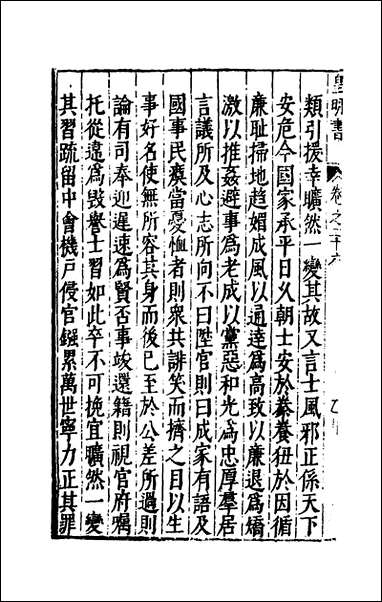 皇明書 卷之二十六
類引援幸曠然一變其故又言士風邪正係天下
安危今國家承平日乆朝士安於豢養狃於因循
廉耻掃地趋媚成風以通逹爲高致以廉退爲矯
激以推姦避事爲老成以黨惡和光爲忠厚羣居
言議所及心志所向不曰陞官則曰成家有語及
國事民瘼當憂恤者則衆共誹笑而擠之目以生
事好名使無所容其身而後已至於公差所過則
論有司奉迎遲速爲賢否事竣還籍則視官府嘱
托從違爲毁譽士習如此卒不可挽宜曠然一變
其習疏留中會機戸侵官鏹累萬世寧力正其罪